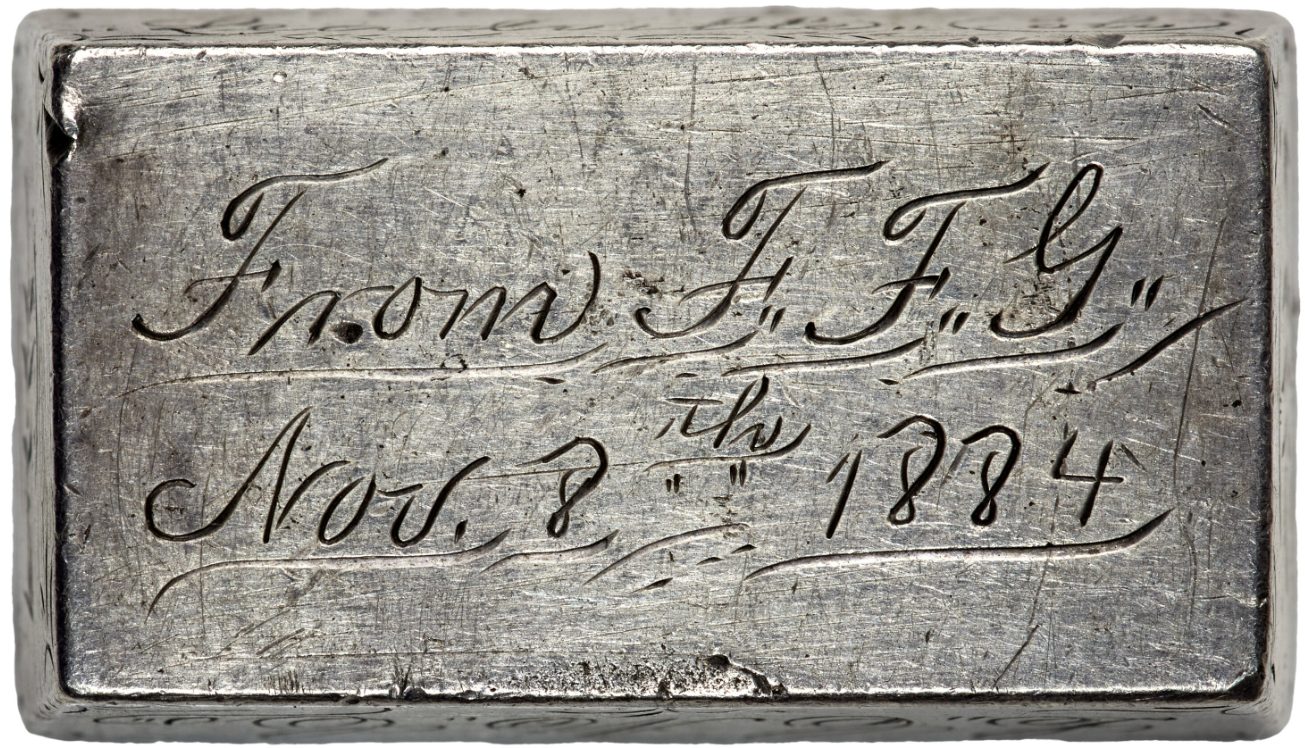 From F,, F,, G,,
Nov. 8th 1884